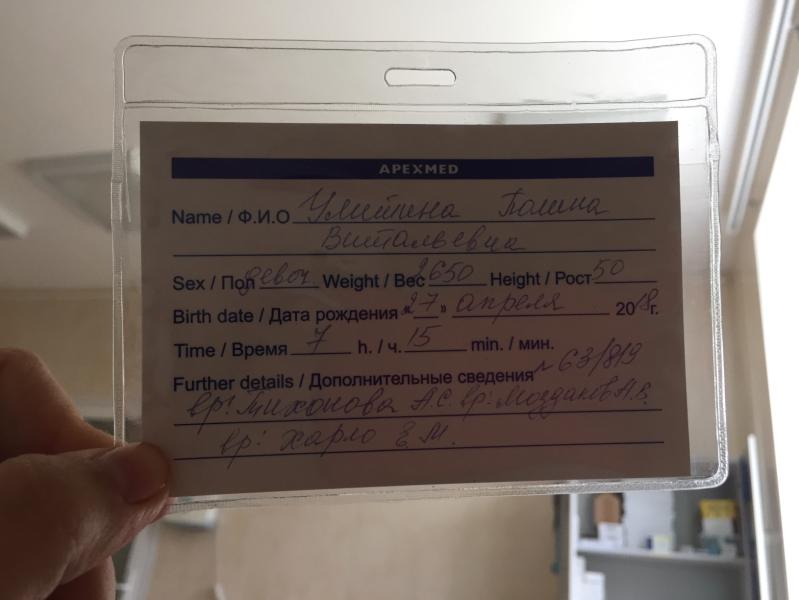 APEXMED
Name / Ф.И.О Улитина Полина
Витальевна
Sex / Пол девоч Weight / Вес 2650 Height / Рост 50
Birth date / Дата рождения «27» апреля 2018г.
Time / Время 7 h. / ч. 15 min. / мин.
Further details / Дополнительные сведения № 63/819
вр: Тихонова А.С. вр:
вр: Харло Е.М.